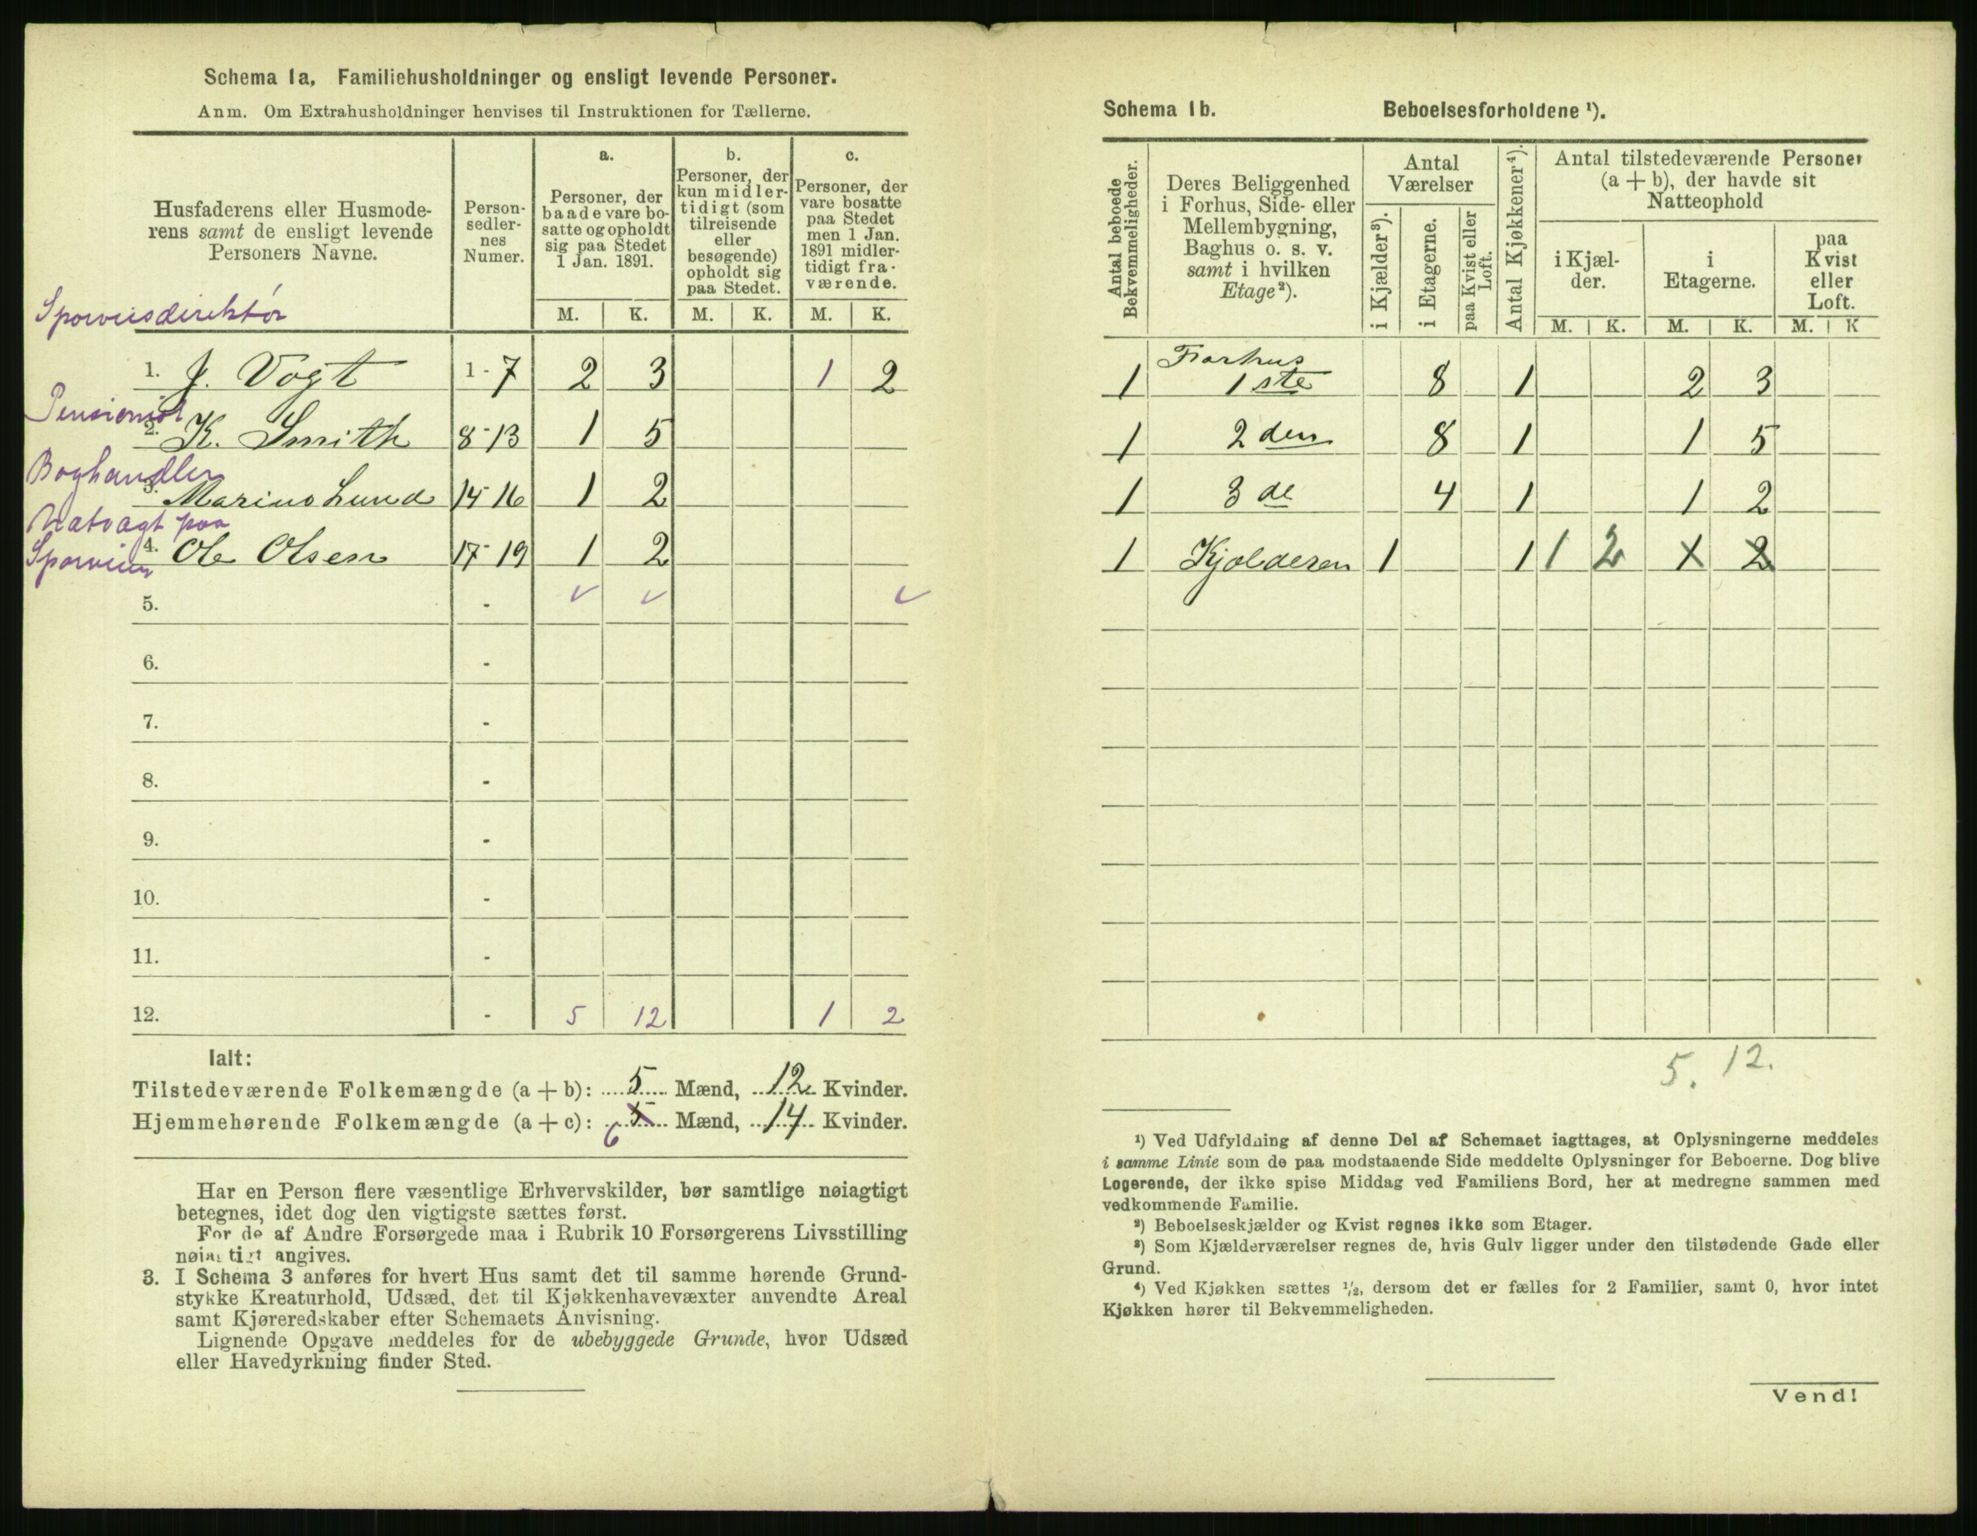 Schema 1a. Familiehusholdninger og ensligt levende Personer.
Anm. Om Extrahusholdninger henvises til Instruktionen for Tællerne.
Husfaderens eller Husmoderens samt de ensligt levende Personers Navne.
Personsedlernes Numer.
a. Personer, der baade vare bosatte og opholdt sig paa Stedet 1 Jan. 1891.
b. Personer, der kun midlertidigt (som tilreisende eller besøgende) opholdt sig paa Stedet.
c. Personer, der vare bosatte paa Stedet men 1 Jan. 1891 midlertidigt fraværende.
M. K. M. K. M. K.
Sporveisdirektør
1. J. Vogt 1 - 7 2 3 1 2
Pensionist
2. K. Smith 8 - 13 1 5
Boghandler
3. Marius Lund 14 - 16 1 2
Natvagt paa
4. Ole Olsen 17 - 19 1 2
Sporveien
5. -
6. -
7. -
8. -
9. -
10. -
11. -
12. - 5 12 1 2
Ialt:
Tilstedeværende Folkemængde (a + b): 5 Mænd, 12 Kvinder.
Hjemmehørende Folkemængde (a + c): 5 Mænd, 14 Kvinder.
6
Har en Person flere væsentlige Erhvervskilder, bør samtlige nøiagtigt
betegnes, idet dog den vigtigste sættes først.
For de af Andre Forsørgede maa i Rubrik 10 Forsørgerens Livsstilling
nøiagtigt angives.
3. I Schema 3 anføres for hvert Hus samt det til samme hørende Grund-
stykke Kreaturhold, Udsæd, det til Kjøkkenhavevæxter anvendte Areal
samt Kjøreredskaber efter Schemaets Anvisning.
Lignende Opgave meddeles for de ubebyggede Grunde, hvor Udsæd
eller Havedyrkning finder Sted.
Schema 1b. Beboelsesforholdene ¹).
Antal beboede Bekvemmeligheder.
Deres Beliggenhed i Forhus, Side- eller Mellembygning, Baghus o. s. v. samt i hvilken Etage²).
Antal Værelser
i Kjælder³).
i Etagerne.
paa Kvist eller Loft.
Antal Kjøkkener⁴).
Antal tilstedeværende Personer (a + b), der havde sit Natteophold
i Kjælder.
i Etagerne.
paa Kvist eller Loft.
M. K. M. K. M. K
Forhus
1 1 ste 8 1 2 3
1 2 den 8 1 1 5
1 3 de 4 1 1 2
1 Kjælderen 1 1 1 2 1 2
5. 12.
¹) Ved Udfyldning af denne Del af Schemaet iagttages, at Oplysningerne meddeles
i samme Linie som de paa modstaaende Side meddelte Oplysninger for Beboerne. Dog blive
Logerende, der ikke spise Middag ved Familiens Bord, her at medregne sammen med
vedkommende Familie.
²) Beboelseskjælder og Kvist regnes ikke som Etager.
³) Som Kjælderværelser regnes de, hvis Gulv ligger under den tilstødende Gade eller
Grund.
⁴) Ved Kjøkken sættes ¹/₂, dersom det er fælles for 2 Familier, samt 0, hvor intet
Kjøkken hører til Bekvemmeligheden.
Vend!